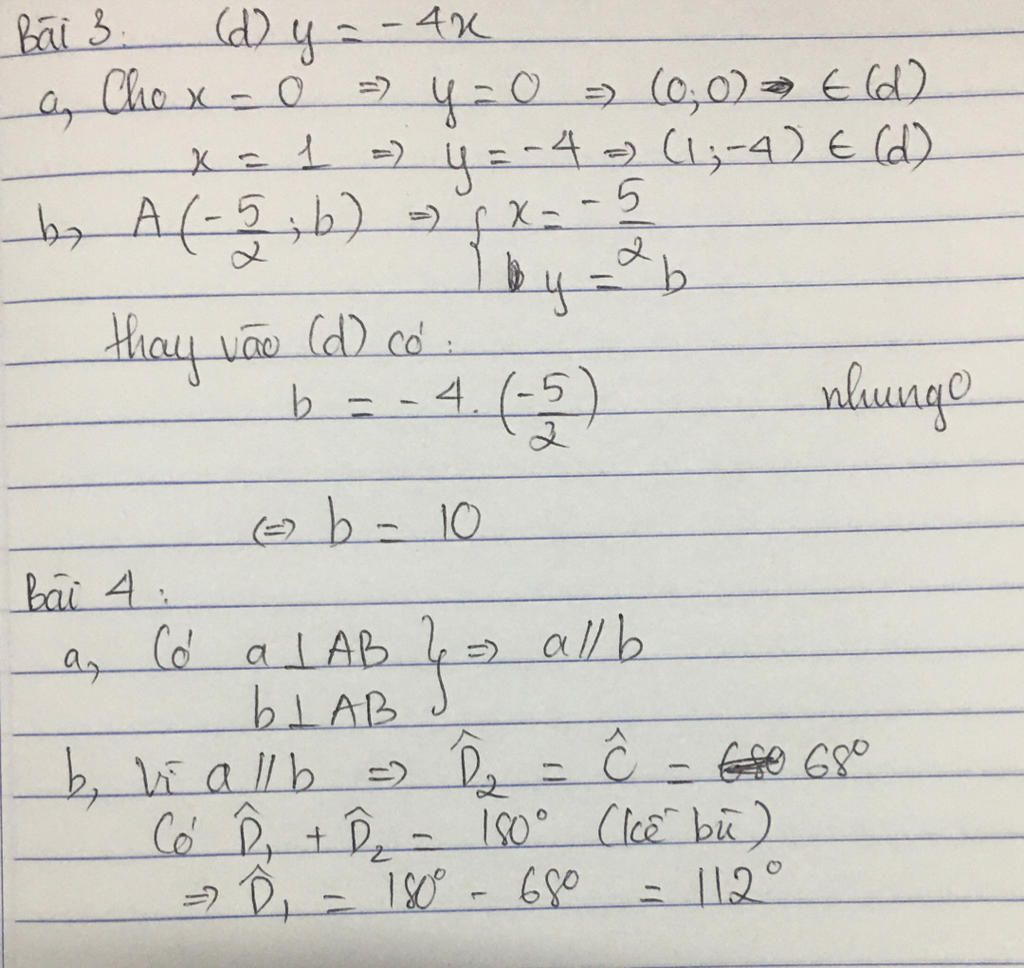 Bài 3: (d) y = -4x
a, Cho x = 0 => y = 0 => (0;0) ∈ (d)
x = 1 => y = -4 => (1;-4) ∈ (d)
b, A(-5/2; b) => { x = -5/2
y = b
thay vào (d) có:
b = -4.(-5/2) nhungo
<=> b = 10
Bài 4:
a, Có a ⊥ AB } => a // b
b ⊥ AB
b, Vì a // b => D̂₂ = Ĉ = 68°
Có D̂₁ + D̂₂ = 180° (kề bù)
=> D̂₁ = 180° - 68° = 112°